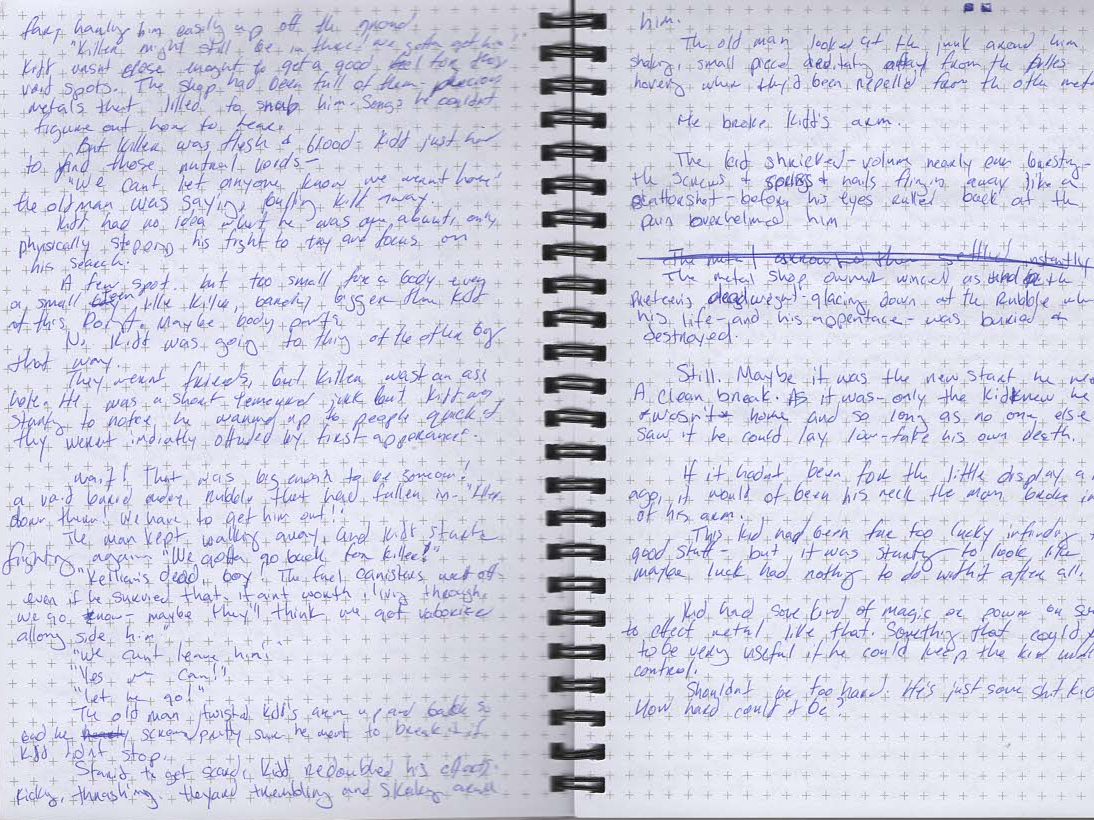 fary, hauling him easily up off the ground.
"Killer might still be in there, we gotta get him!"
Kidd wasnt close enought to get a good feel for they
void spots. The shop had been full of them precious
metals that lilled to snap him. Songs he couldnt
figure out how to hear.
But Killer was flesh & blood- Kidd just had
to find those nutral voids-
"We cant let anyone know we weant here"
the old man was saying, pulling Kidd away.
Kidd had no idea what he was on about, only
physically stopping his fight to try and focus on
his search.
A few spot, but too small for a body even
a small like Killer, barely bigger than Kidd
at this point. Maybe body parts?
No. Kidd was going to thing of the other big
that way.
They wernt friends, but Killer wasnt an ass
hole. He was a short temeured jerk but Kidd was
starting to notice he warmed up to people quick if
they wernt indiatly offended by first apperance.
Wait! That was big enough to be someone!
a void buried under rubble that had fallen in- "Hes
down there! We have to get him out!"
The man kept walking away, and Kidd started
fighting again "We gotta go back for Killer!"
"Kellian's dead, boy! The fuel canisters went off-
even if he survived that, it aint worth living through.
we go know- maybe they'll think we got vaborized
allong side him"
"We cant leave him!
"Yes we can!!
"Let me go!"
The old man twisted Kidd's arm up and back so
bad he scream, pretty sure he ment to break it if
Kidd didnt stop.
Starting to get scared, Kidd redoubled his efforts.
kicking, thrashing. They are trembling and shaking around
him.
The old man looked at the junk around him
shaking, small pieced away from the
hovering when they'd been repelled from the other metal
He broke Kidd's arm.
The kid shrieked- volume nearly ear bursting-
the screws & springs & nails flinging away like a
before his eyes rolled back at the
pain overwhelmed him
The metal them settled instantly
The metal shop owner winced as the
preteens deadweight, glacing down at the Rubble where
his life- and his appentace- was buried &
destroyed.
Still. Maybe it was the new start he
A clean break. As it was- only the kid knew he
*wasn't* home and so long as no one else
saw it he could lay low- fake his own death.
If it hadnt been for the little display a
ago, it would of been his neck the man broke in
of his arm.
This kid had been far too lucky infinding
good stuff- but it was starting to look like
maybe luck had nothing to do withit after all.
Kid had some kind of magic or power or
to effect metal like that. Something that could
to be very useful if he could keep the kid under
control.
Shouldnt be too hard. He's just some shit kid
How hard could it be?